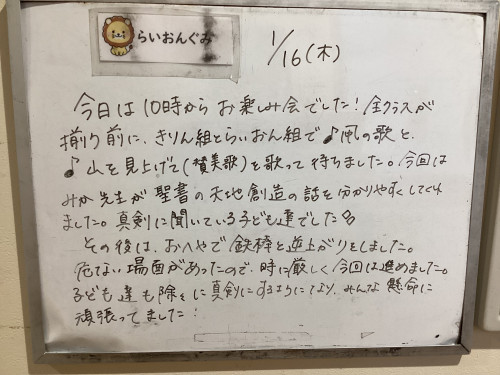 らいおんぐみ
1/16(木)
今日は10時からお楽しみ会でした!全クラスが
揃う前に、きりん組とらいおん組で♪風の歌と、
♪山を見上げて(賛美歌)を歌って待ちました。今回は
みか先生が聖書の天地創造の話を分かりやすくしてくれ
ました。真剣に聞いている子ども達でした
その後は、おへやで鉄棒と逆上がりをしました。
危ない場面があったので、時に厳しく今回は進めました。
子ども達も除々に真剣にするようになり、みんな懸命に
頑張ってました!